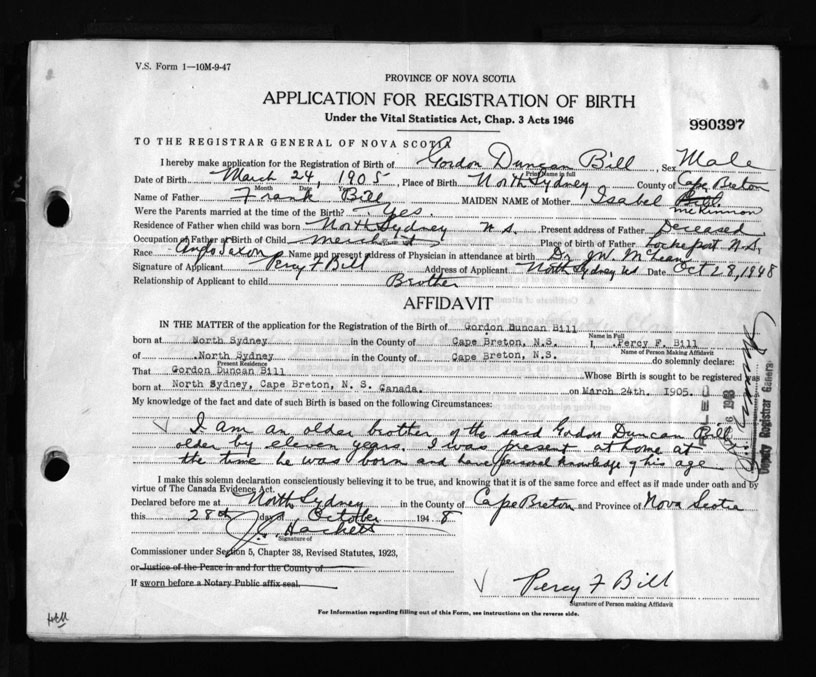 V.S. Form 1—10M-9-47
PROVINCE OF NOVA SCOTIA
APPLICATION FOR REGISTRATION OF BIRTH
Under the Vital Statistics Act, Chap. 3 Acts 1946
990397
TO THE REGISTRAR GENERAL OF NOVA SCOTIA
I hereby make application for the Registration of Birth of Gordon Duncan Bill, Sex Male
Print Name in full
Date of Birth March 24, 1905, Place of Birth North Sydney County of Cape Breton
Month Date Year
Name of Father Frank Bill MAIDEN NAME of Mother Isabel Bill
McKinnon
Were the Parents married at the time of the Birth? Yes.
Residence of Father when child was born North Sydney N S. Present address of Father Deceased
Occupation of Father at Birth of Child Merchant Place of birth of Father Lockeport N.S.
Race Anglo Saxon Name and present address of Physician in attendance at birth Dr JW. McLean
Signature of Applicant Percy F Bill Address of Applicant North Sydney NS Date Oct 28, 1948
Relationship of Applicant to child Brother
AFFIDAVIT
IN THE MATTER of the application for the Registration of the Birth of Gordon Duncan Bill
Name in Full
born at North Sydney in the County of Cape Breton, N.S. I, Percy F. Bill
Name of Person Making Affidavit
of North Sydney in the County of Cape Breton, N.S. do solemnly declare:
Present Residence
That Gordon Duncan Bill Whose Birth is sought to be registered was
born at North Sydney, Cape Breton, N. S. Canada. on March 24th. 1905.
My knowledge of the fact and date of such Birth is based on the following Circumstances:
I am an older brother of the said Gordon Duncan Bill
older by eleven years. I was present at home at
the time he was born and have personal knowledge of his age
I make this solemn declaration conscientiously believing it to be true, and knowing that it is of the same force and effect as if made under oath and by
virtue of The Canada Evidence Act.
Declared before me at North Sydney in the County of Cape Breton and Province of Nova Scotia
this 28th day of October 1948
Hackett
Signature of
Commissioner under Section 5, Chapter 38, Revised Statutes, 1923,
or Justice of the Peace in and for the County of
If sworn before a Notary Public affix seal.
Percy F Bill
Signature of Person making Affidavit
For Information regarding filling out of this Form, see instructions on the reverse side.
FILED
1948
Deputy Registrar General